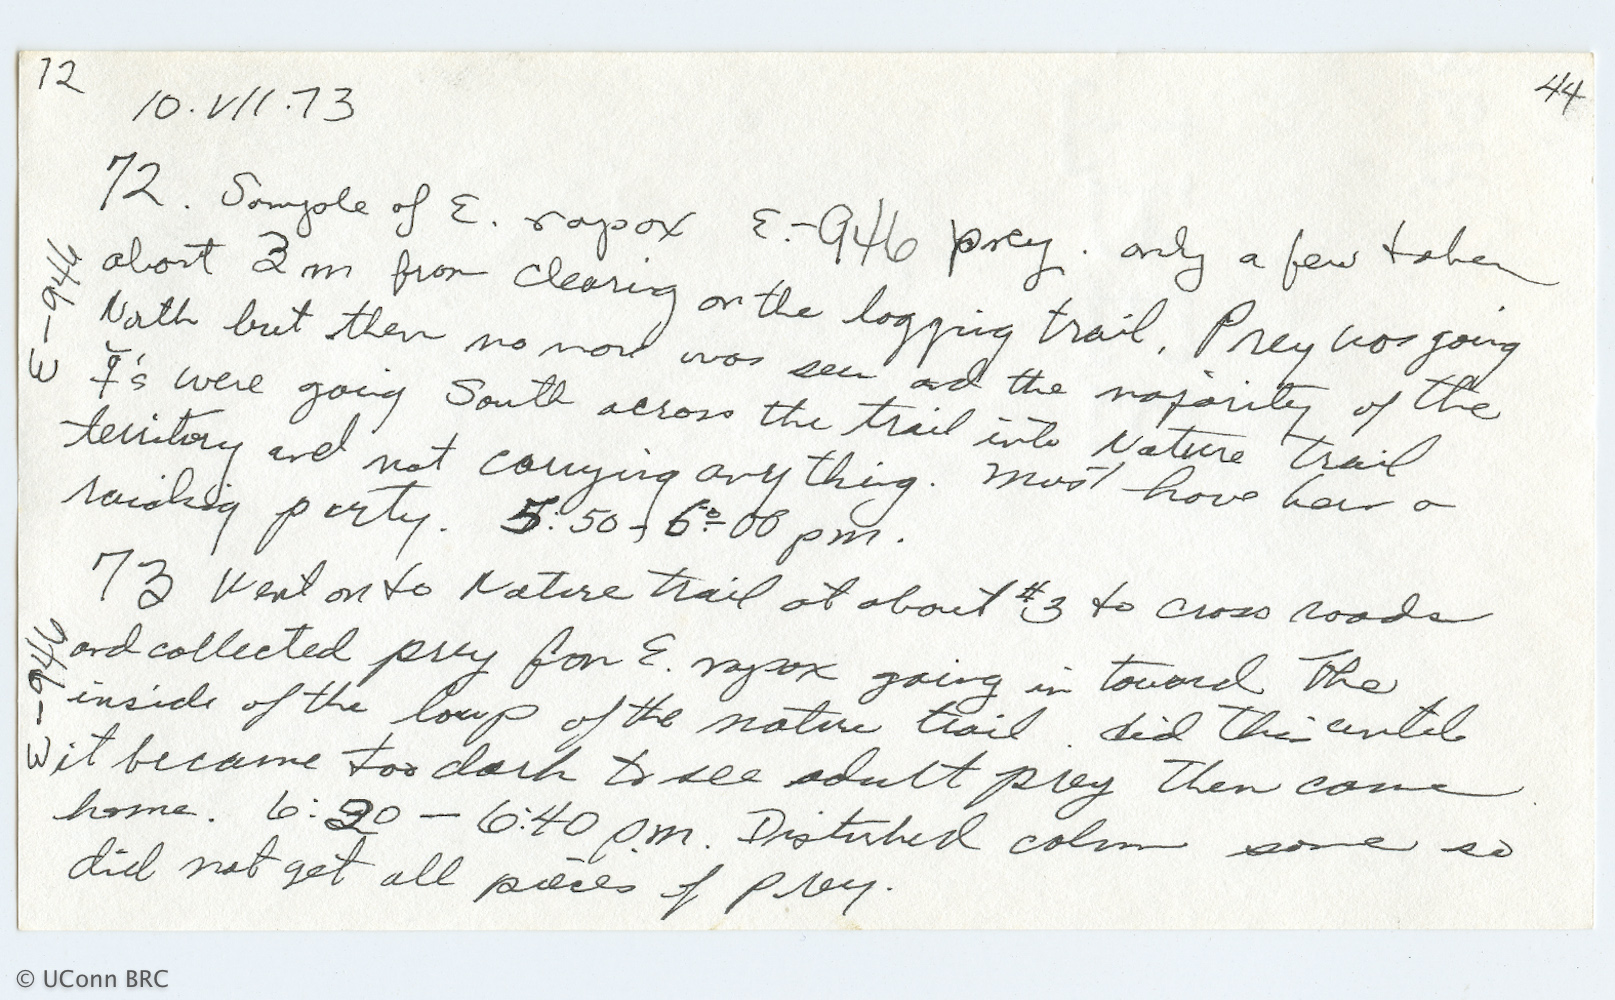 72
44
10.VII.73
72. Sample of E. rapax E-946 prey. only a few taken
about 3 m from clearing on the logging trail. Prey was going
North but then no more was seen and the majority of the
☿'s were going South across the trail into Nature Trail
territory and not carrying anything. Must have been a
raiding party. 5:50-6:00 pm.
E-946
73 Went on to Nature trail at about #3 to cross roads
and collected prey from E. rapax going in toward the
inside of the loop of the nature trail. did this until
it became too dark to see adult prey then came
home. 6:20 - 6:40 pm. Disturbed column some so
did not get all pieces of prey.
E-946
© UConn BRC